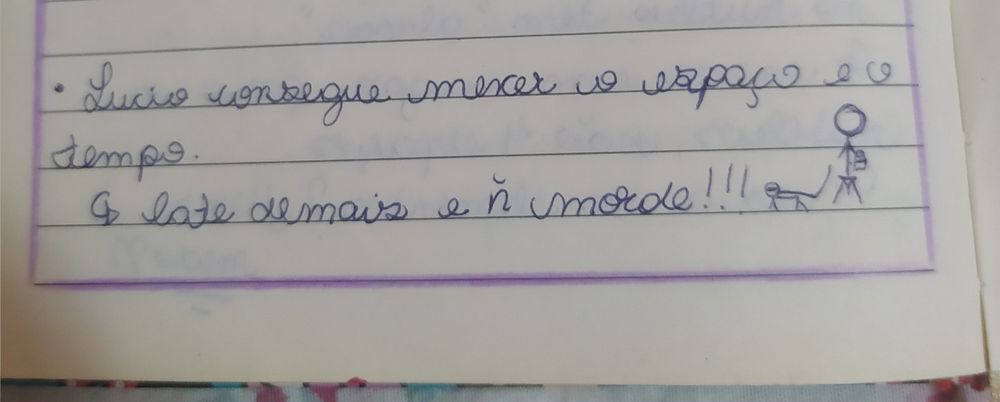 • Lucio consegue mexer o espaço e o
tempo.
↳ late demais e ñ morde!!!